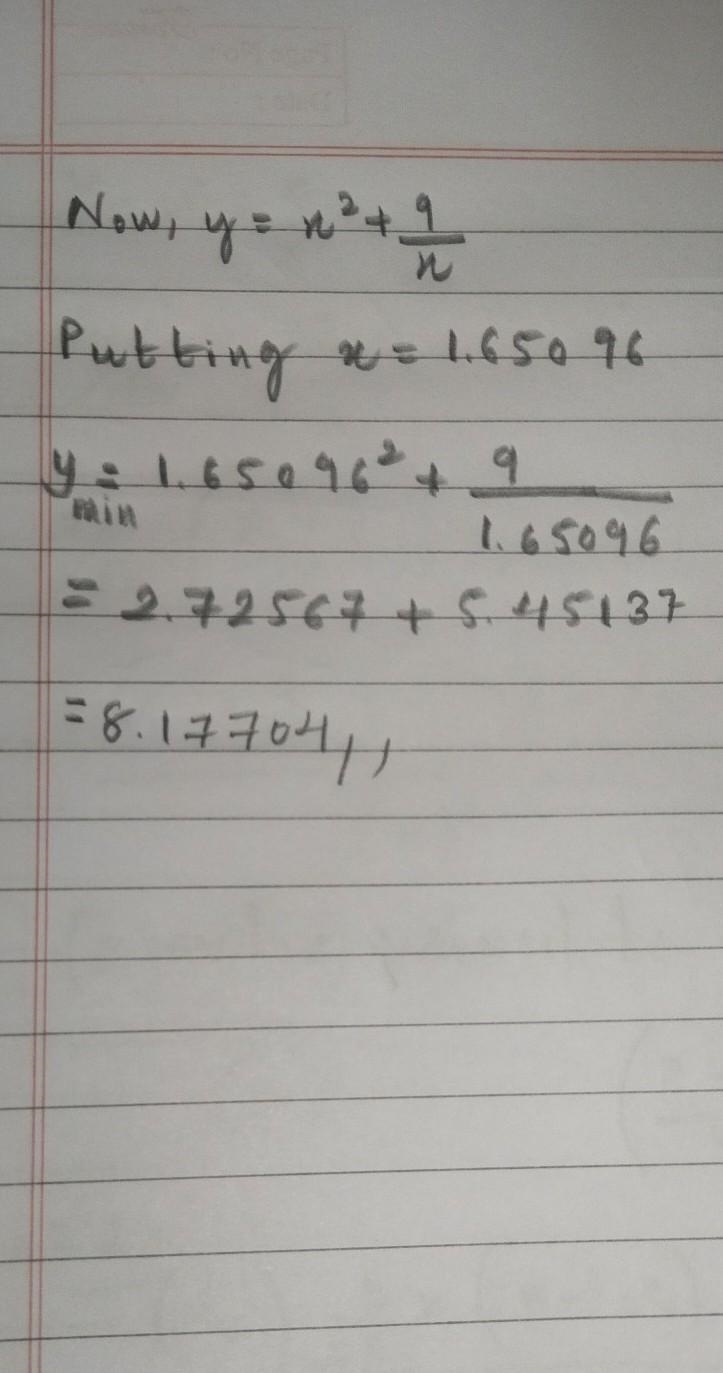 Now, y = x² + 9/x
Putting x = 1.65096
y min = 1.65096² + 9/1.65096
= 2.72567 + 5.45137
= 8.17704,,